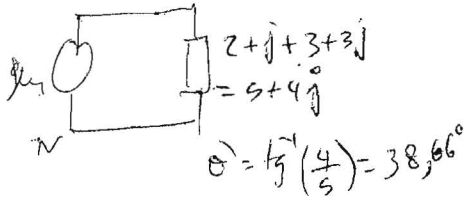 2+j+3+3j
=5+4j
N
θ = tg⁻¹(4/5) = 38,66°